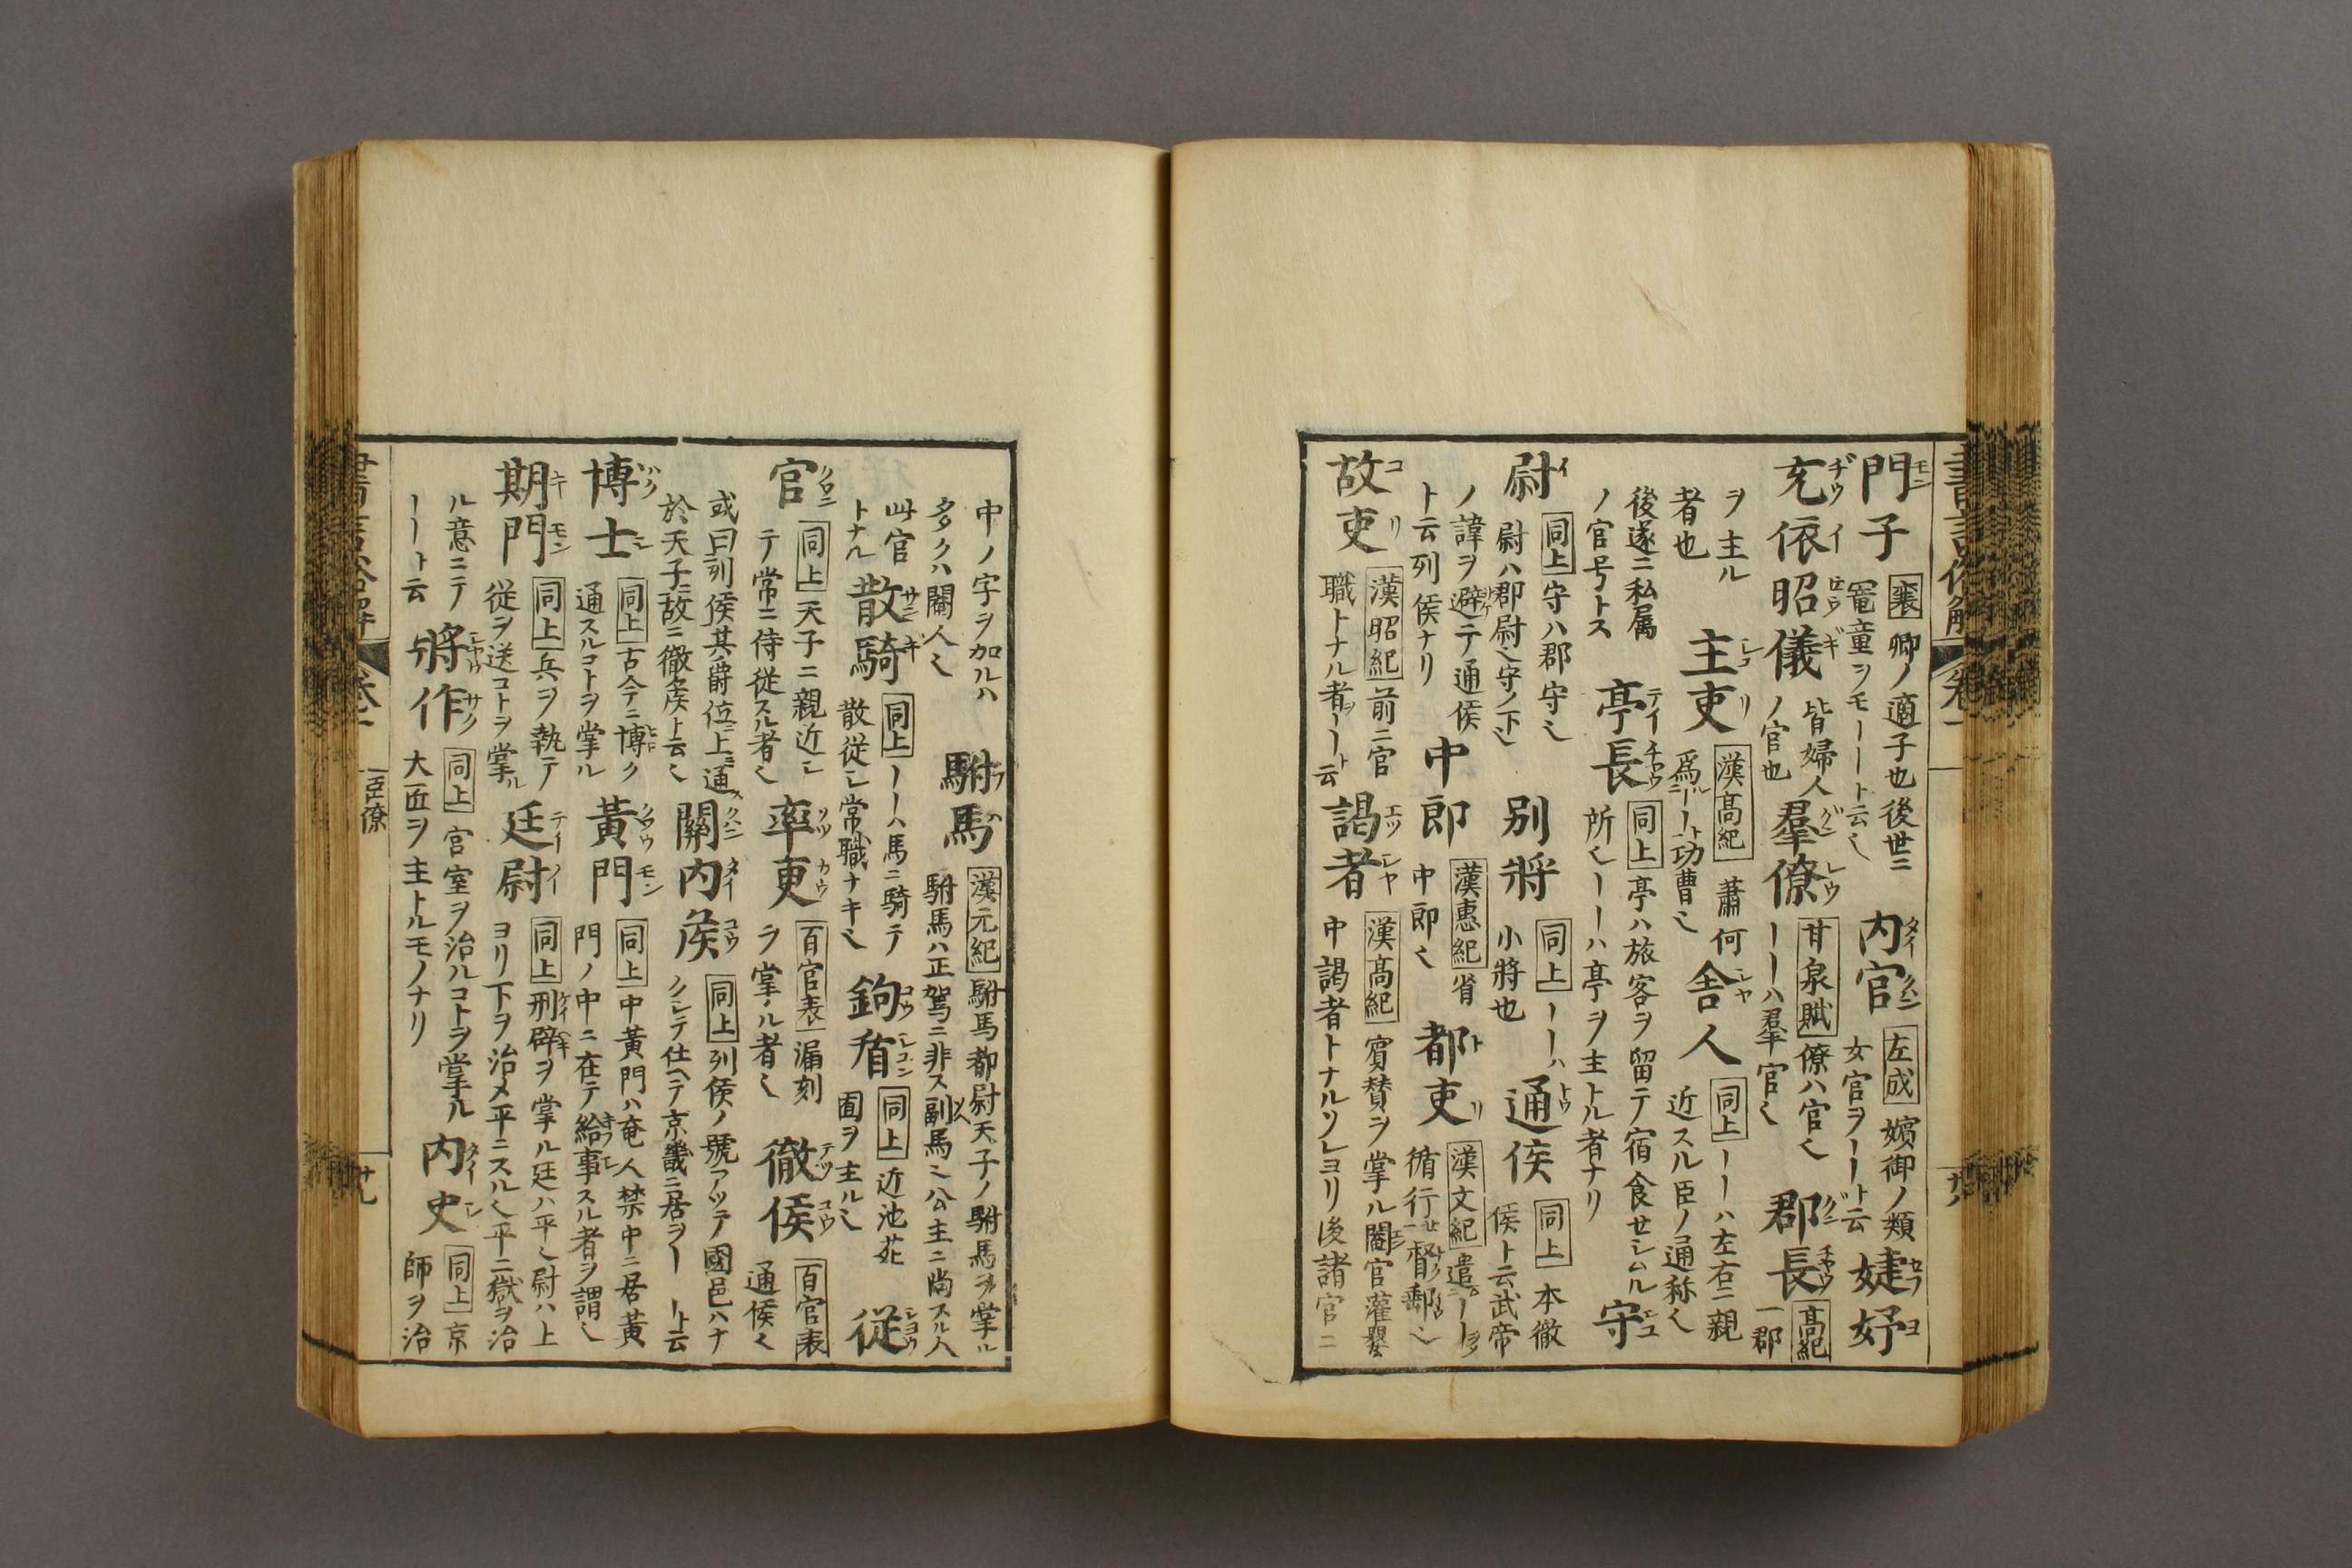 門子 襄 卿ノ適子也後世ニ
竈童ヲモ――ト云〻
内官 左成 嬪御ノ類
女官ヲ――ト云
婕妤
充依昭儀 皆婦人
ノ官也
羣僚 甘泉賦 僚ハ官〻
――ハ羣官〻
郡長 高紀 一郡
ヲ主ル
者也
主吏 漢高紀 蕭何
為――ト功曹〻
舎人 同上 ――ハ左右ニ親
近スル臣ノ通称〻
後遂ニ私属
ノ官号トス
亭長 同上 亭ハ旅客ヲ留テ宿食セシムル
所〻――ハ亭ヲ主トル者ナリ
守
尉 同上 守ハ郡守〻
尉ハ郡尉〻守ノ下〻
別将 同上 ――ハ
小将也
通侯 同上 本徹
侯ト云武帝
ノ諱ヲ避テ通侯
ト云列侯ナリ
中郎 漢惠紀 省
中郎〻
都吏 漢文紀 遣――ヲ
循行督郵〻
故吏 漢昭紀 前ニ官
職トナル者ヲ――ト云
謁者 漢高紀 賓賛ヲ掌ル閹官灌嬰
中謁者トナルソレヨリ後諸官ニ
中ノ字ヲ加ルハ
多クハ閹人〻
駙馬 漢元紀 駙馬都尉天子ノ駙馬ヲ掌ル
駙馬ハ正駕ニ非ス副馬〻公主ニ尚スル人
此官
トナル
散騎 同上 ――ハ馬ニ騎テ
散従シ常職ナキ〻
鉤盾 同上 近池苑
囿ヲ主ル〻
従
官 同上 天子ニ親近シ
テ常ニ侍従スル者〻
率更 百官表 漏刻
ヲ掌ル者〻
徹侯 百官表
通侯〻
或曰列侯其爵位上通
於天子ニ故ニ徹侯ト云〻
關内侯 同上 列侯ノ號アツテ國邑ハナ
クシテ仕ヘテ京畿ニ居ヲ――ト云
博士 同上 古今ニ博ク
通スルコトヲ掌ル
黄門 同上 中黄門ハ奄人禁中ニ居黄
門ノ中ニ在テ給事スル者ヲ謂〻
期門 同上 兵ヲ執テ
従ヲ送コトヲ掌ル
廷尉 同上 刑辟ヲ掌ル廷ハ平〻尉ハ上
ヨリ下ヲ治メ平ニスル〻平ニ獄ヲ治
ル意ニテ
――ト云
將作 同上 官室ヲ治ルコトヲ掌ル
大匠ヲ主トルモノナリ
内史 同上 京
師ヲ治
臣僚
廿九